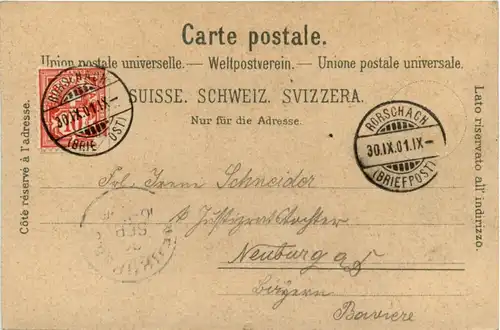 Carte postale.
Union postale universelle. — Weltpostverein. — Unione postale universale.
SUISSE. SCHWEIZ. SVIZZERA.
Nur für die Adresse.
Côté réservé à l'adresse.
Lato riservato all' indirizzo.
RORSCHACH
30.IX.01.IX—
(BRIEFPOST)
RORSCHACH
30.IX.01.IX—
(BRIEFPOST)
Frl. Irene Schneider
Neuburg a/D
Bayern
Baviere
SEP